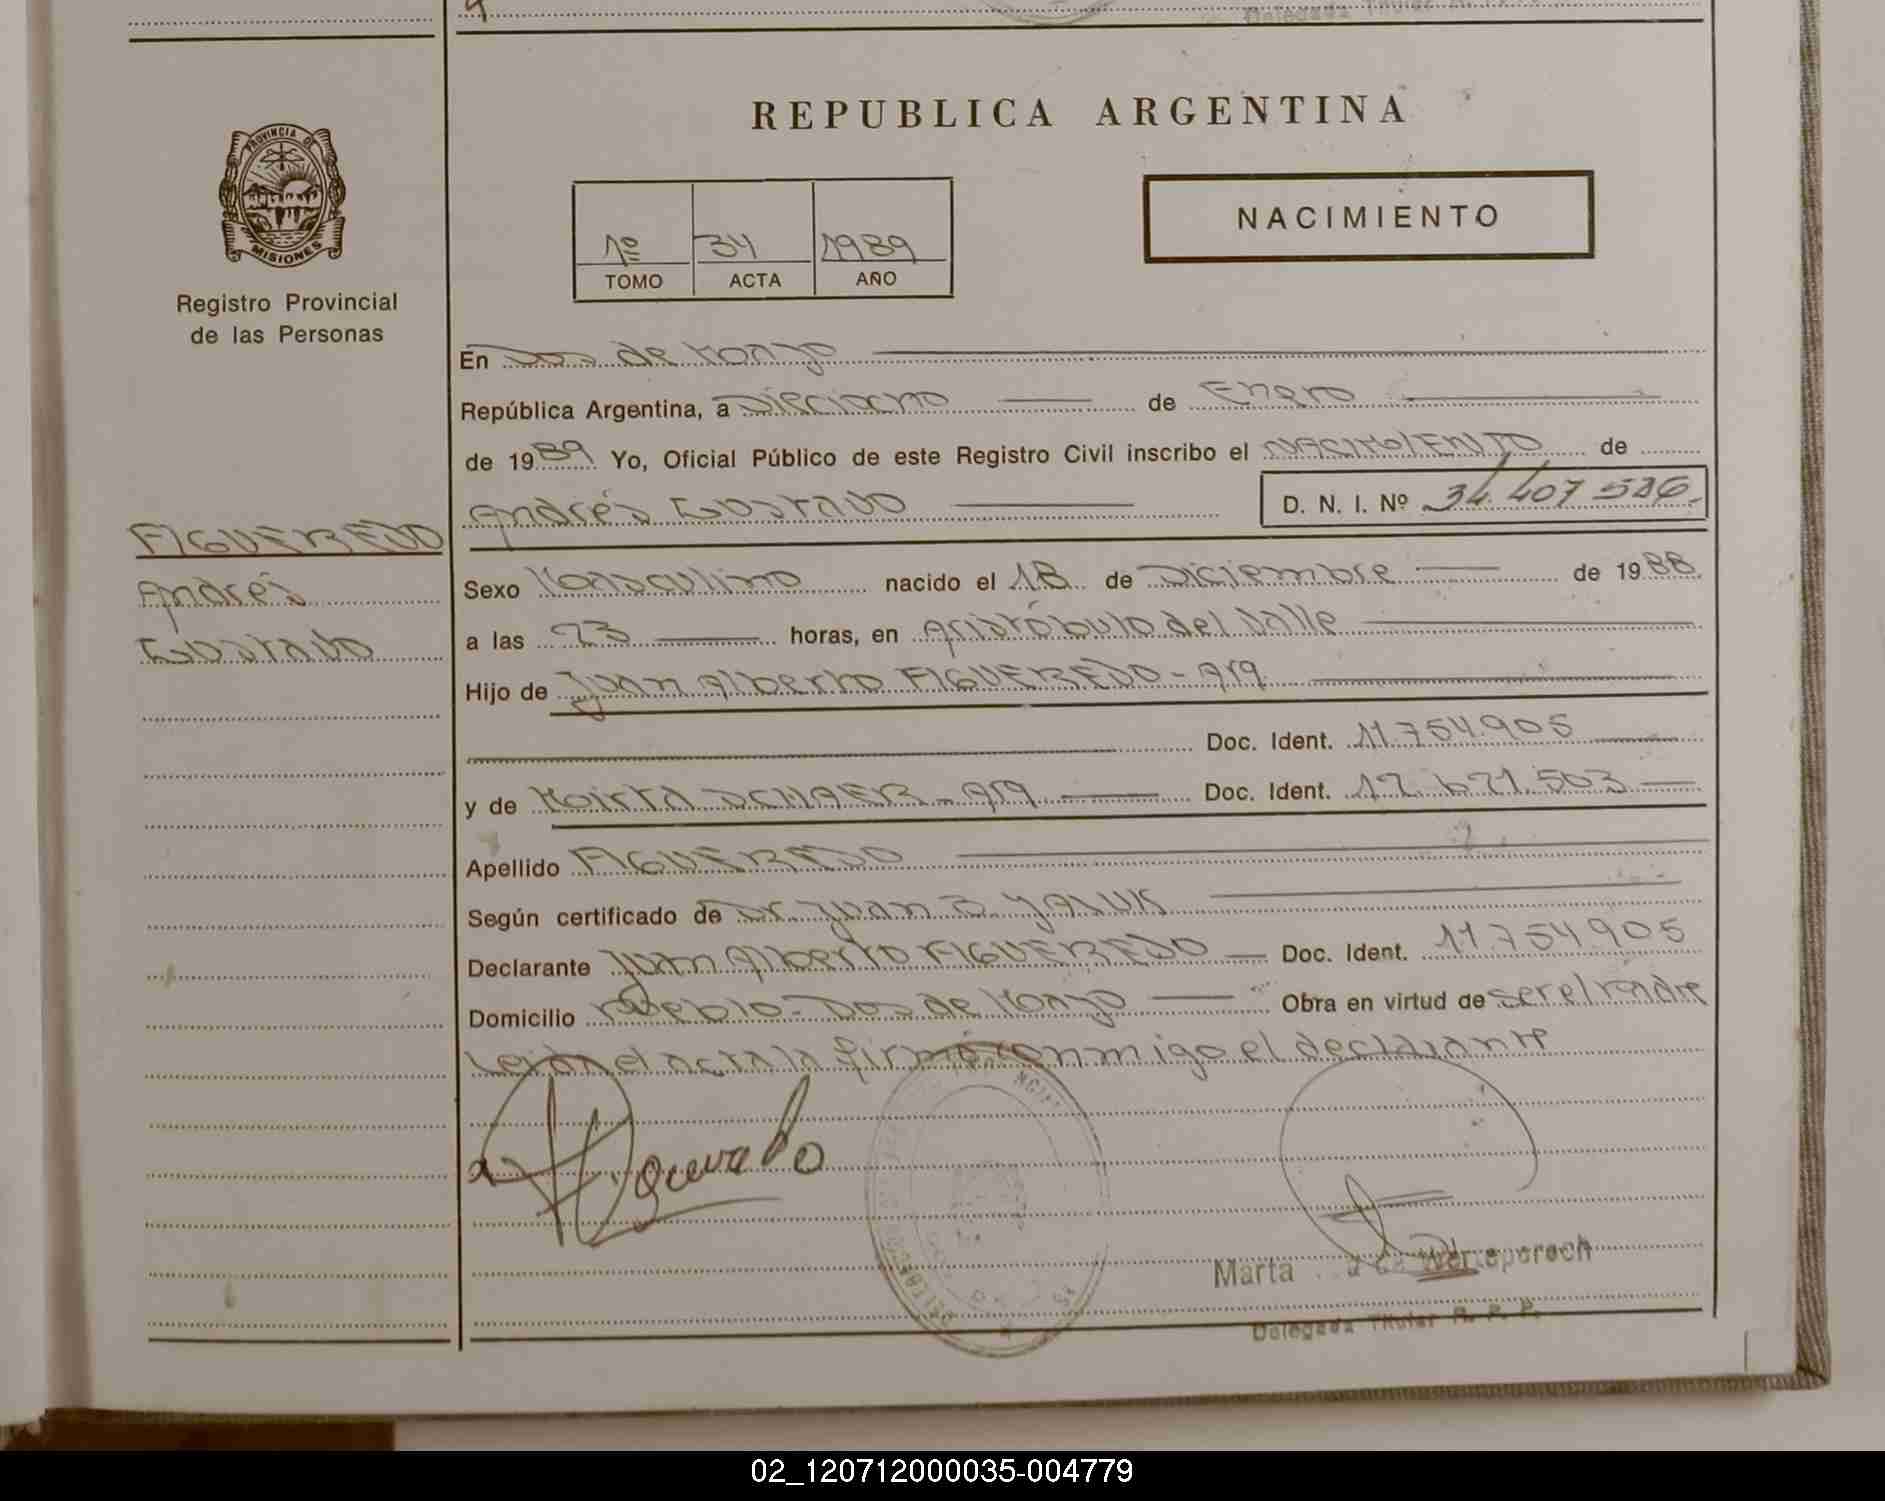 Delegada Titular R. P. P.
REPUBLICA ARGENTINA
PROVINCIA DE
MISIONES
Registro Provincial
de las Personas
1º 34 1989
TOMO ACTA AÑO
NACIMIENTO
En Dos de Mayo
República Argentina, a Dieciocho de Enero
de 1989 Yo, Oficial Público de este Registro Civil inscribo el NACIMIENTO de
Andrés Gustavo D. N. I. Nº 34.407.526.
FIGUEREDO
Andrés
Gustavo
Sexo Masculino nacido el 18 de Diciembre de 1988
a las 23 horas, en Aristóbulo del Valle
Hijo de Juan Alberto FIGUEREDO - Arg
Doc. Ident. 11.754.905
y de Mirta - Arg Doc. Ident. 17.671.503
Apellido FIGUEREDO
Según certificado de Dr Juan B. YALUK
Declarante Juan Alberto FIGUEREDO Doc. Ident. 11.754.905
Domicilio Pueblo - Dos de Mayo Obra en virtud de ser el Padre
Leída el acta la firmó conmigo el declarante
Marta de
Delegada Titular R. P. P.
02_120712000035-004779